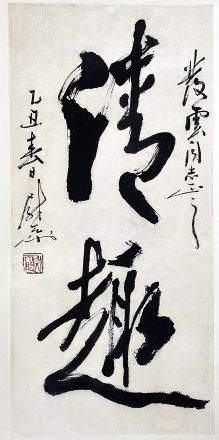 發雲同志正之
清趣
乙丑春日